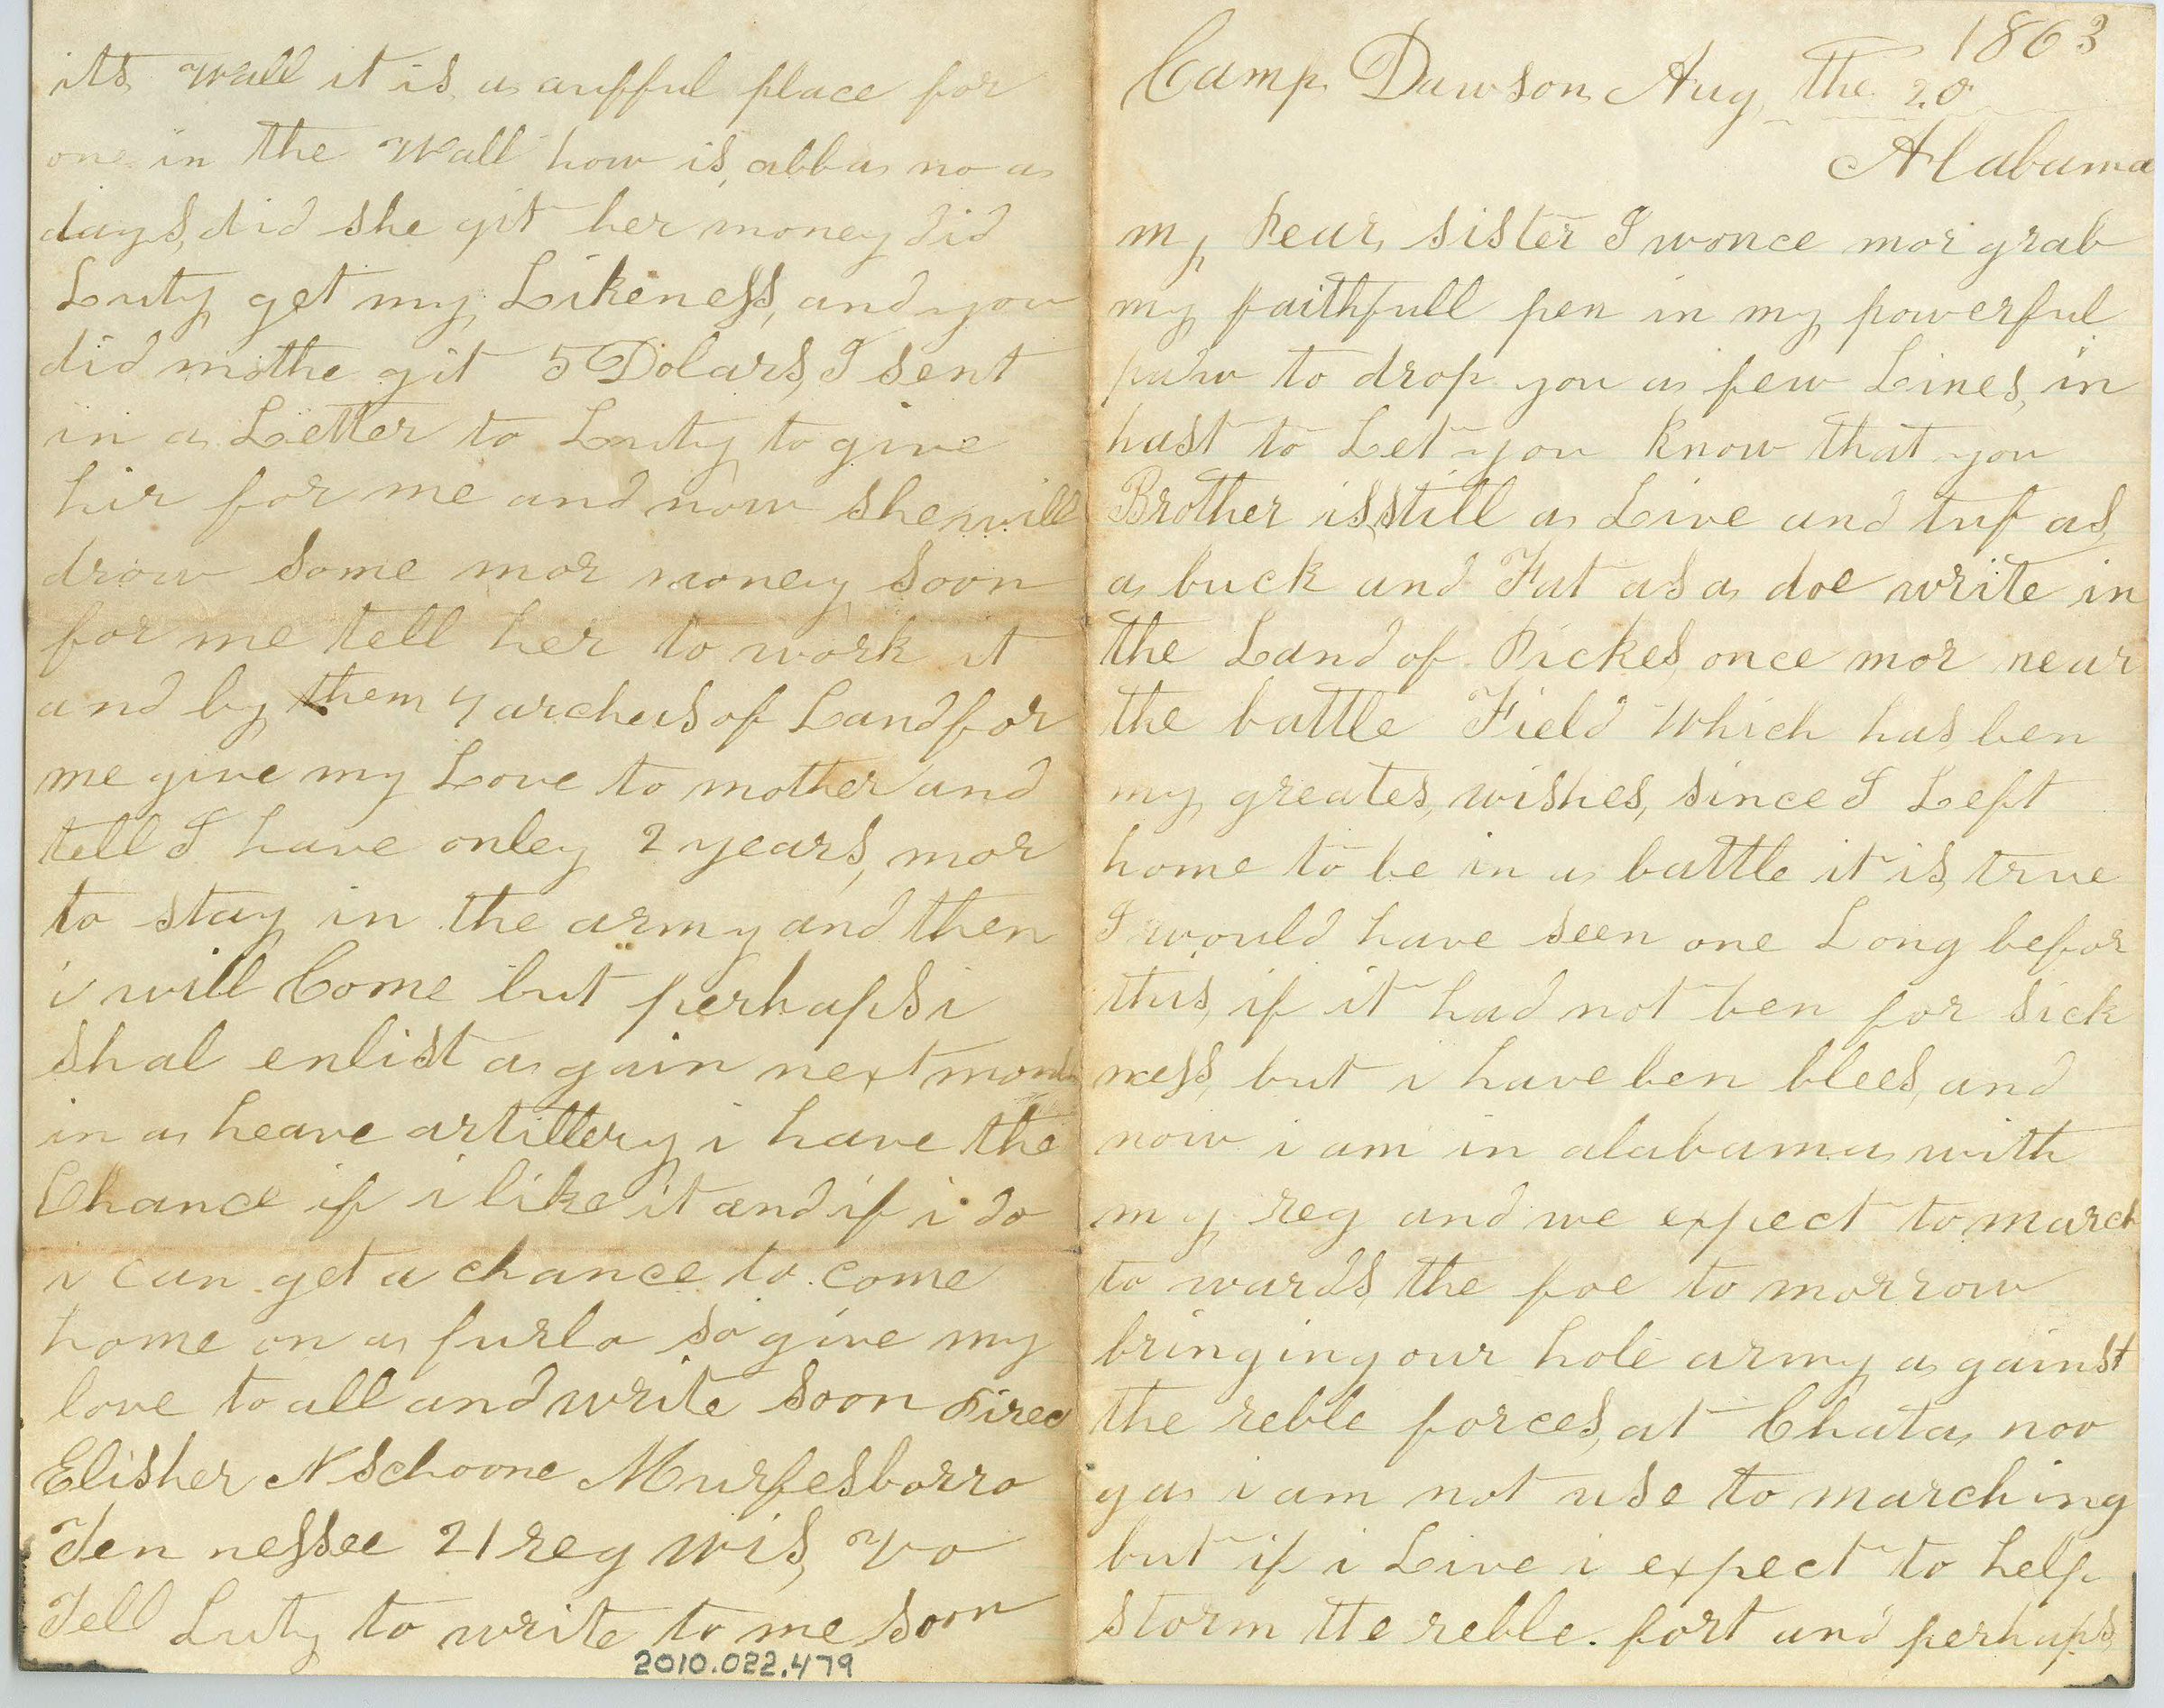 1863
Camp Dawson Aug the 20
Alabama
my Dear sister I wonce mor grab
my faithfull pen in my powerful
paw to drop you a few Lines in
hast to Let you know that you
Brother is still a Live and tuf as
a buck and Fat as a doe write in
the Land of Pickes once mor near
the battle Field Which has ben
my greates wishes since I Left
home to be in a battle it is true
I would have seen one Long befor
this if it had not ben for sick
ness but i have ben blees and
now i am in alabama with
my reg and we expect to march
to wards the foe to morrow
bringing our hole army a gainst
the reble forces at Chata noo
ga i am not use to marching
but if i Live i expect to help
storm tte reble. fort and perhaps
its Wall it is a aufful place for
one in the Wall how is abba no a
days did she git her money did
Luty get my Likeness, and you
did mothe git 5 Dolars I sent
in a Letter to Luty to give
hir for me and now she will
drow some mor money soon
for me tell her to work it
and by them 4 archers of Land for
me give my Love to mother and
tell I have onley 2 years mor
to stay in the army and then
i will Come but perhaps i
shal enlist a gain next month
in a heave artillery i have the
Chance if i like it and if i do
i can get a chance to come
home on a furlo so give my
love to all and write soon Direc
Elisher N schoone Murfesborro
Ten nessee 21 reg Wis, Vo
Tell Luty to write to me soon
2010.022.479